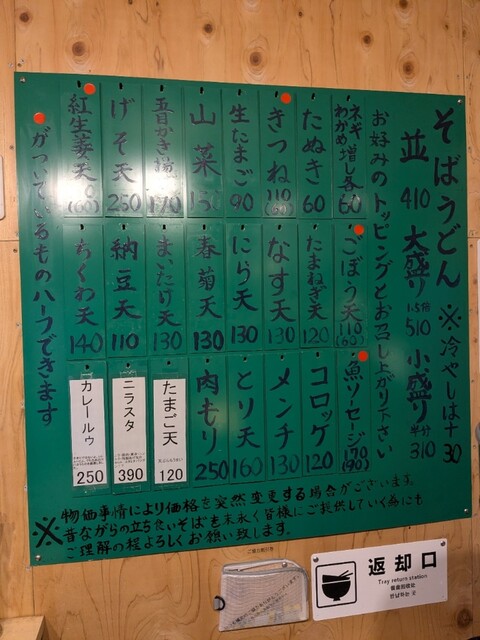 そばうどん ※冷やしは+30
並 410 大盛り 1.5倍 510 小盛り 半分 310
お好みのトッピングとお召し上がり下さい
ネギ わかめ 増し各60
たぬき 60
きつね 110 (60)
生たまご 90
山菜 150
五目かき揚 170
げそ天 250
紅生姜天 (60)
ごぼう天 110 (60)
たまねぎ天 120
なす天 130
にら天 130
春菊天 130
まいたけ天 130
納豆天 110
ちくわ天 140
魚ソーセージ 170 (90)
コロッケ 120
メンチ 130
とり天 160
肉もり 250
たまご天 120
ニラスタ 390
カレールゥ 250
がついているものハーフできます
※物価事情により価格を突然変更する場合がございます。
昔ながらの立ち食いそばを末永く皆様にご提供していく為にも
ご理解の程よろしくお願い致します。
返却口
Tray return station